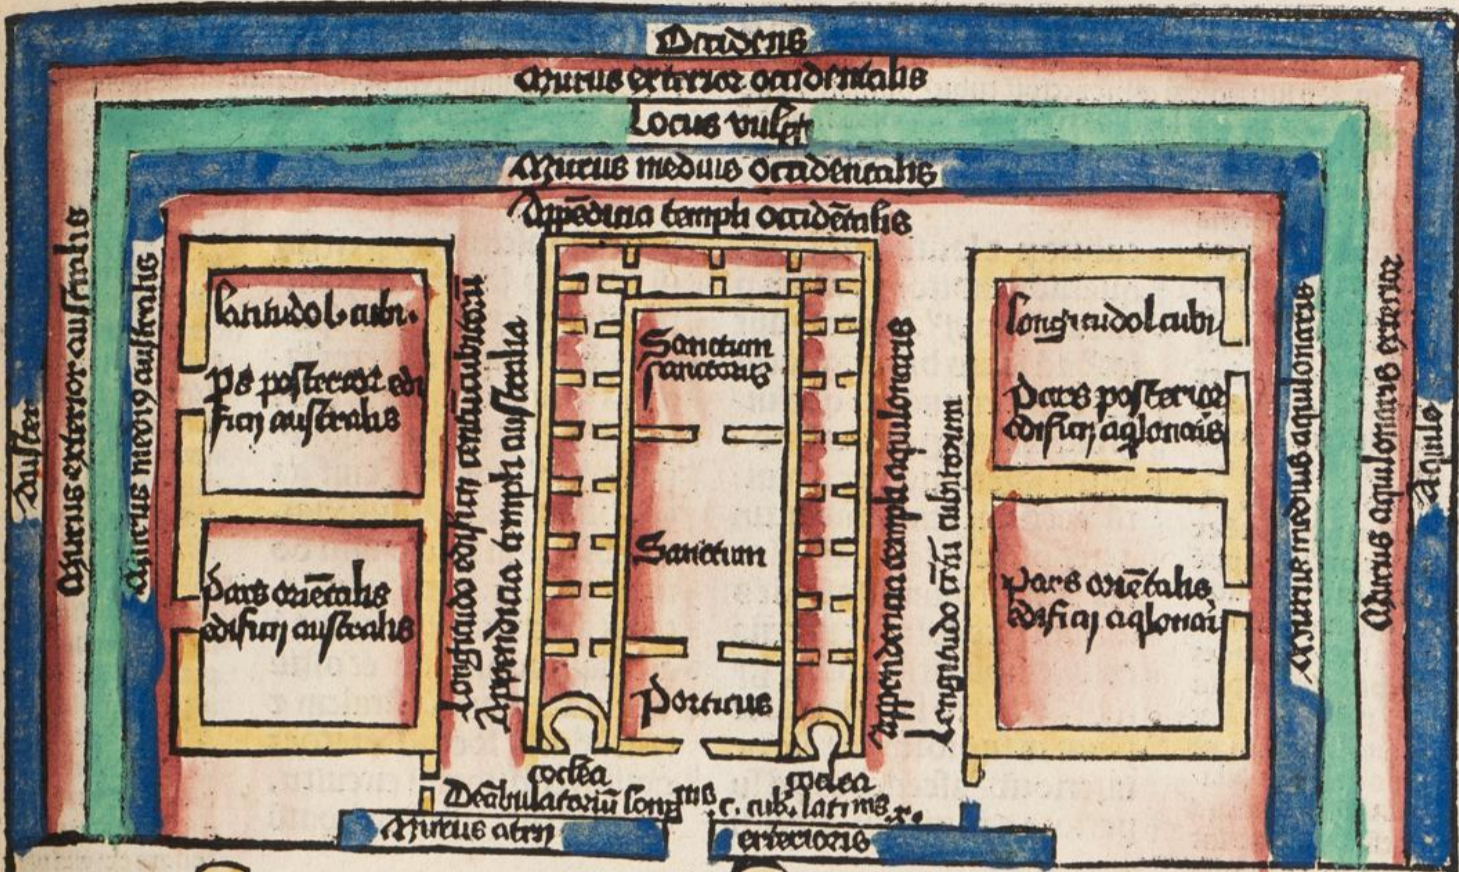 Occidens
Murus exterior occidentalis
Locus vulgi
Murus medius occidentalis
Appēdicia templi occidētalis
Auster
Murus exterior australis
Murus medi9 australis
latitudo l. cubi.
Ps posterior edi
ficij australis
Pars oriētalis
edificij australis
Longitudo edificij centū cubitorū
Appendicia templi australia
Sanctum
sanctorum
Sanctum
Porticus
coclea
coclea
Appendencia templi aquilonaris
Longitudo cētū cubitorum
longitudo l cubi
Pars posterior
edificij aqlonaris
Pars oriētalis
edificij aqlonari
Murus medius aquilonaris
Murus aquilonaris exterior
Aquilo
Deābulatoriū longitudinis .c. cub. latitudinis .x.
Murus atrij
exterioris